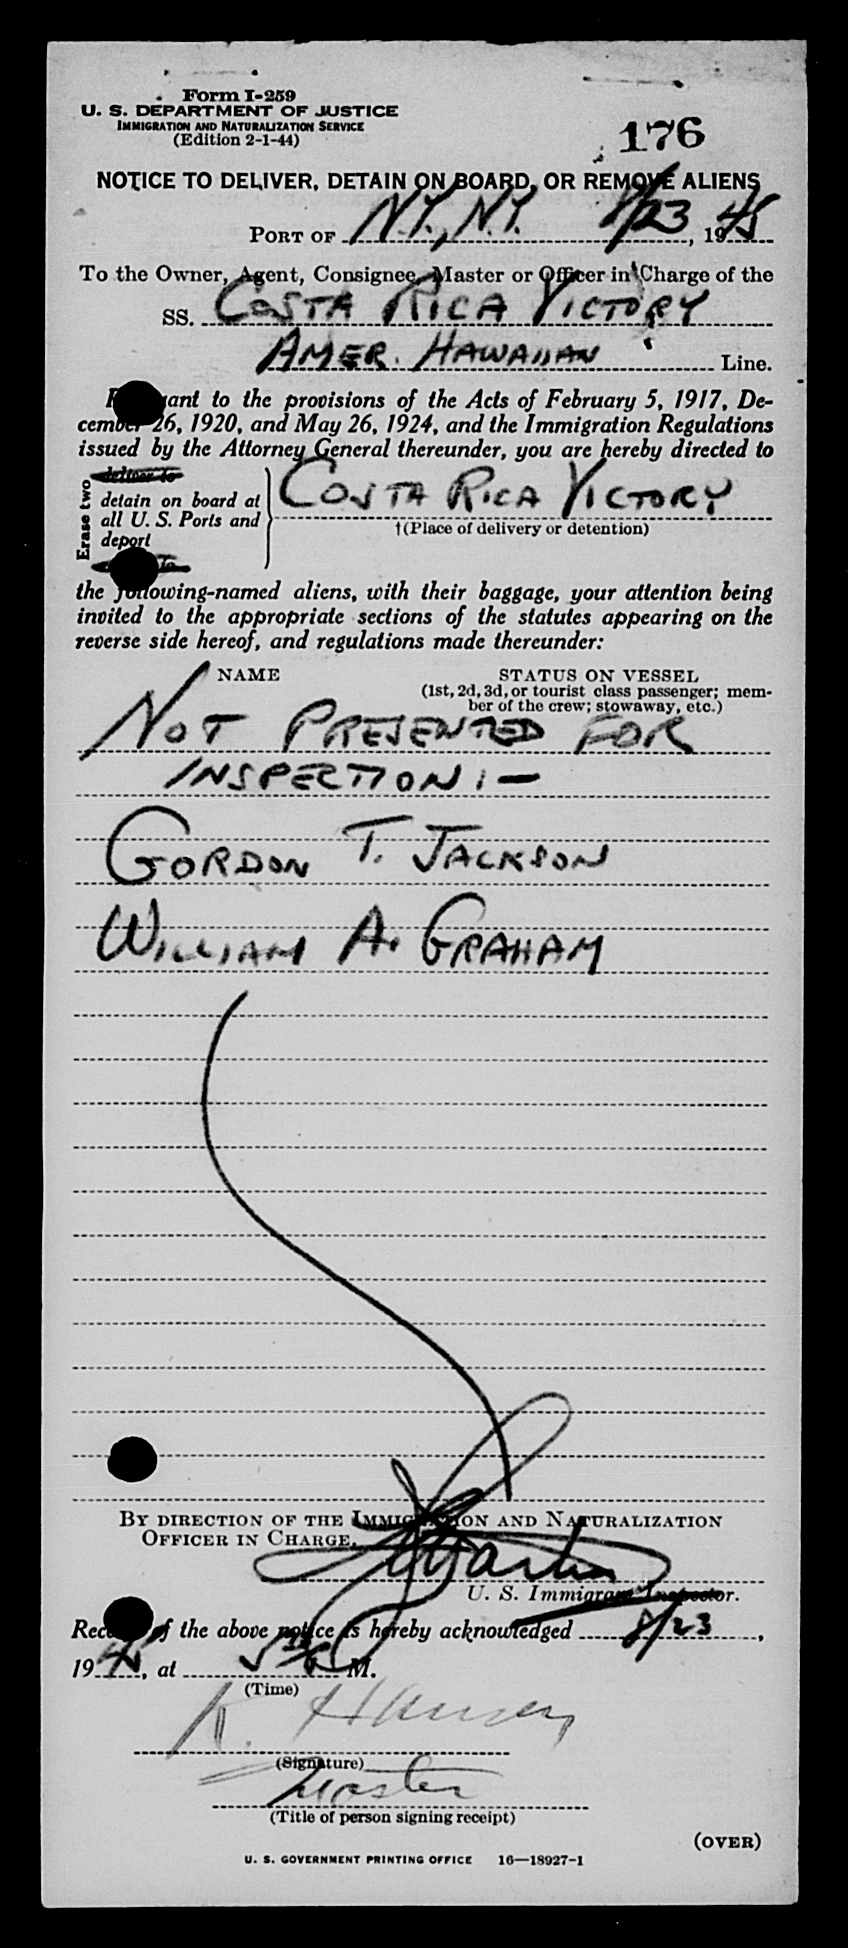 Form I-259
U. S. DEPARTMENT OF JUSTICE
IMMIGRATION AND NATURALIZATION SERVICE
(Edition 2-1-44)
176
NOTICE TO DELIVER, DETAIN ON BOARD, OR REMOVE ALIENS
PORT OF N.Y., N.Y. 8/23, 1945
To the Owner, Agent, Consignee, Master or Officer in Charge of the
SS. COSTA RICA VICTORY
AMER. HAWAIIAN Line.
Pursuant to the provisions of the Acts of February 5, 1917, De-
cember 26, 1920, and May 26, 1924, and the Immigration Regulations
issued by the Attorney General thereunder, you are hereby directed to
Erase two
deliver to
detain on board at
all U. S. Ports and
deport
COSTA RICA VICTORY
†(Place of delivery or detention)
the following-named aliens, with their baggage, your attention being
invited to the appropriate sections of the statutes appearing on the
reverse side hereof, and regulations made thereunder:
NAME STATUS ON VESSEL
(1st, 2d, 3d, or tourist class passenger; mem-
ber of the crew; stowaway, etc.)
NOT PRESENTED FOR
INSPECTION:-
GORDON T. JACKSON
WILLIAM A. GRAHAM
BY DIRECTION OF THE IMMIGRATION AND NATURALIZATION
OFFICER IN CHARGE.
U. S. Immigrant Inspector.
Receipt of the above notice is hereby acknowledged 8/23,
1945, at M.
(Time)
K. Hansen
(Signature)
Master
(Title of person signing receipt)
(OVER)
U. S. GOVERNMENT PRINTING OFFICE 16—18927-1